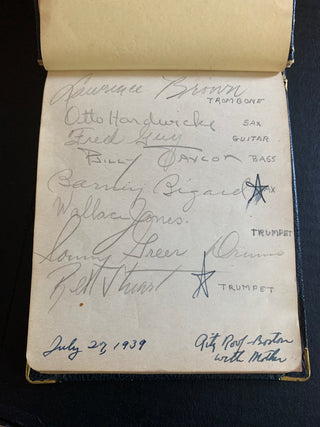 Lawrence Brown TROMBONE
Otto Hardwicke SAX
Fred Guy GUITAR
Billy Taylor BASS
Barney Bigard SAX
Wallace Jones. TRUMPET
Sonny Greer Drums
Rex Stewart TRUMPET
July 27, 1939
Ritz Roof-Boston
with Mother